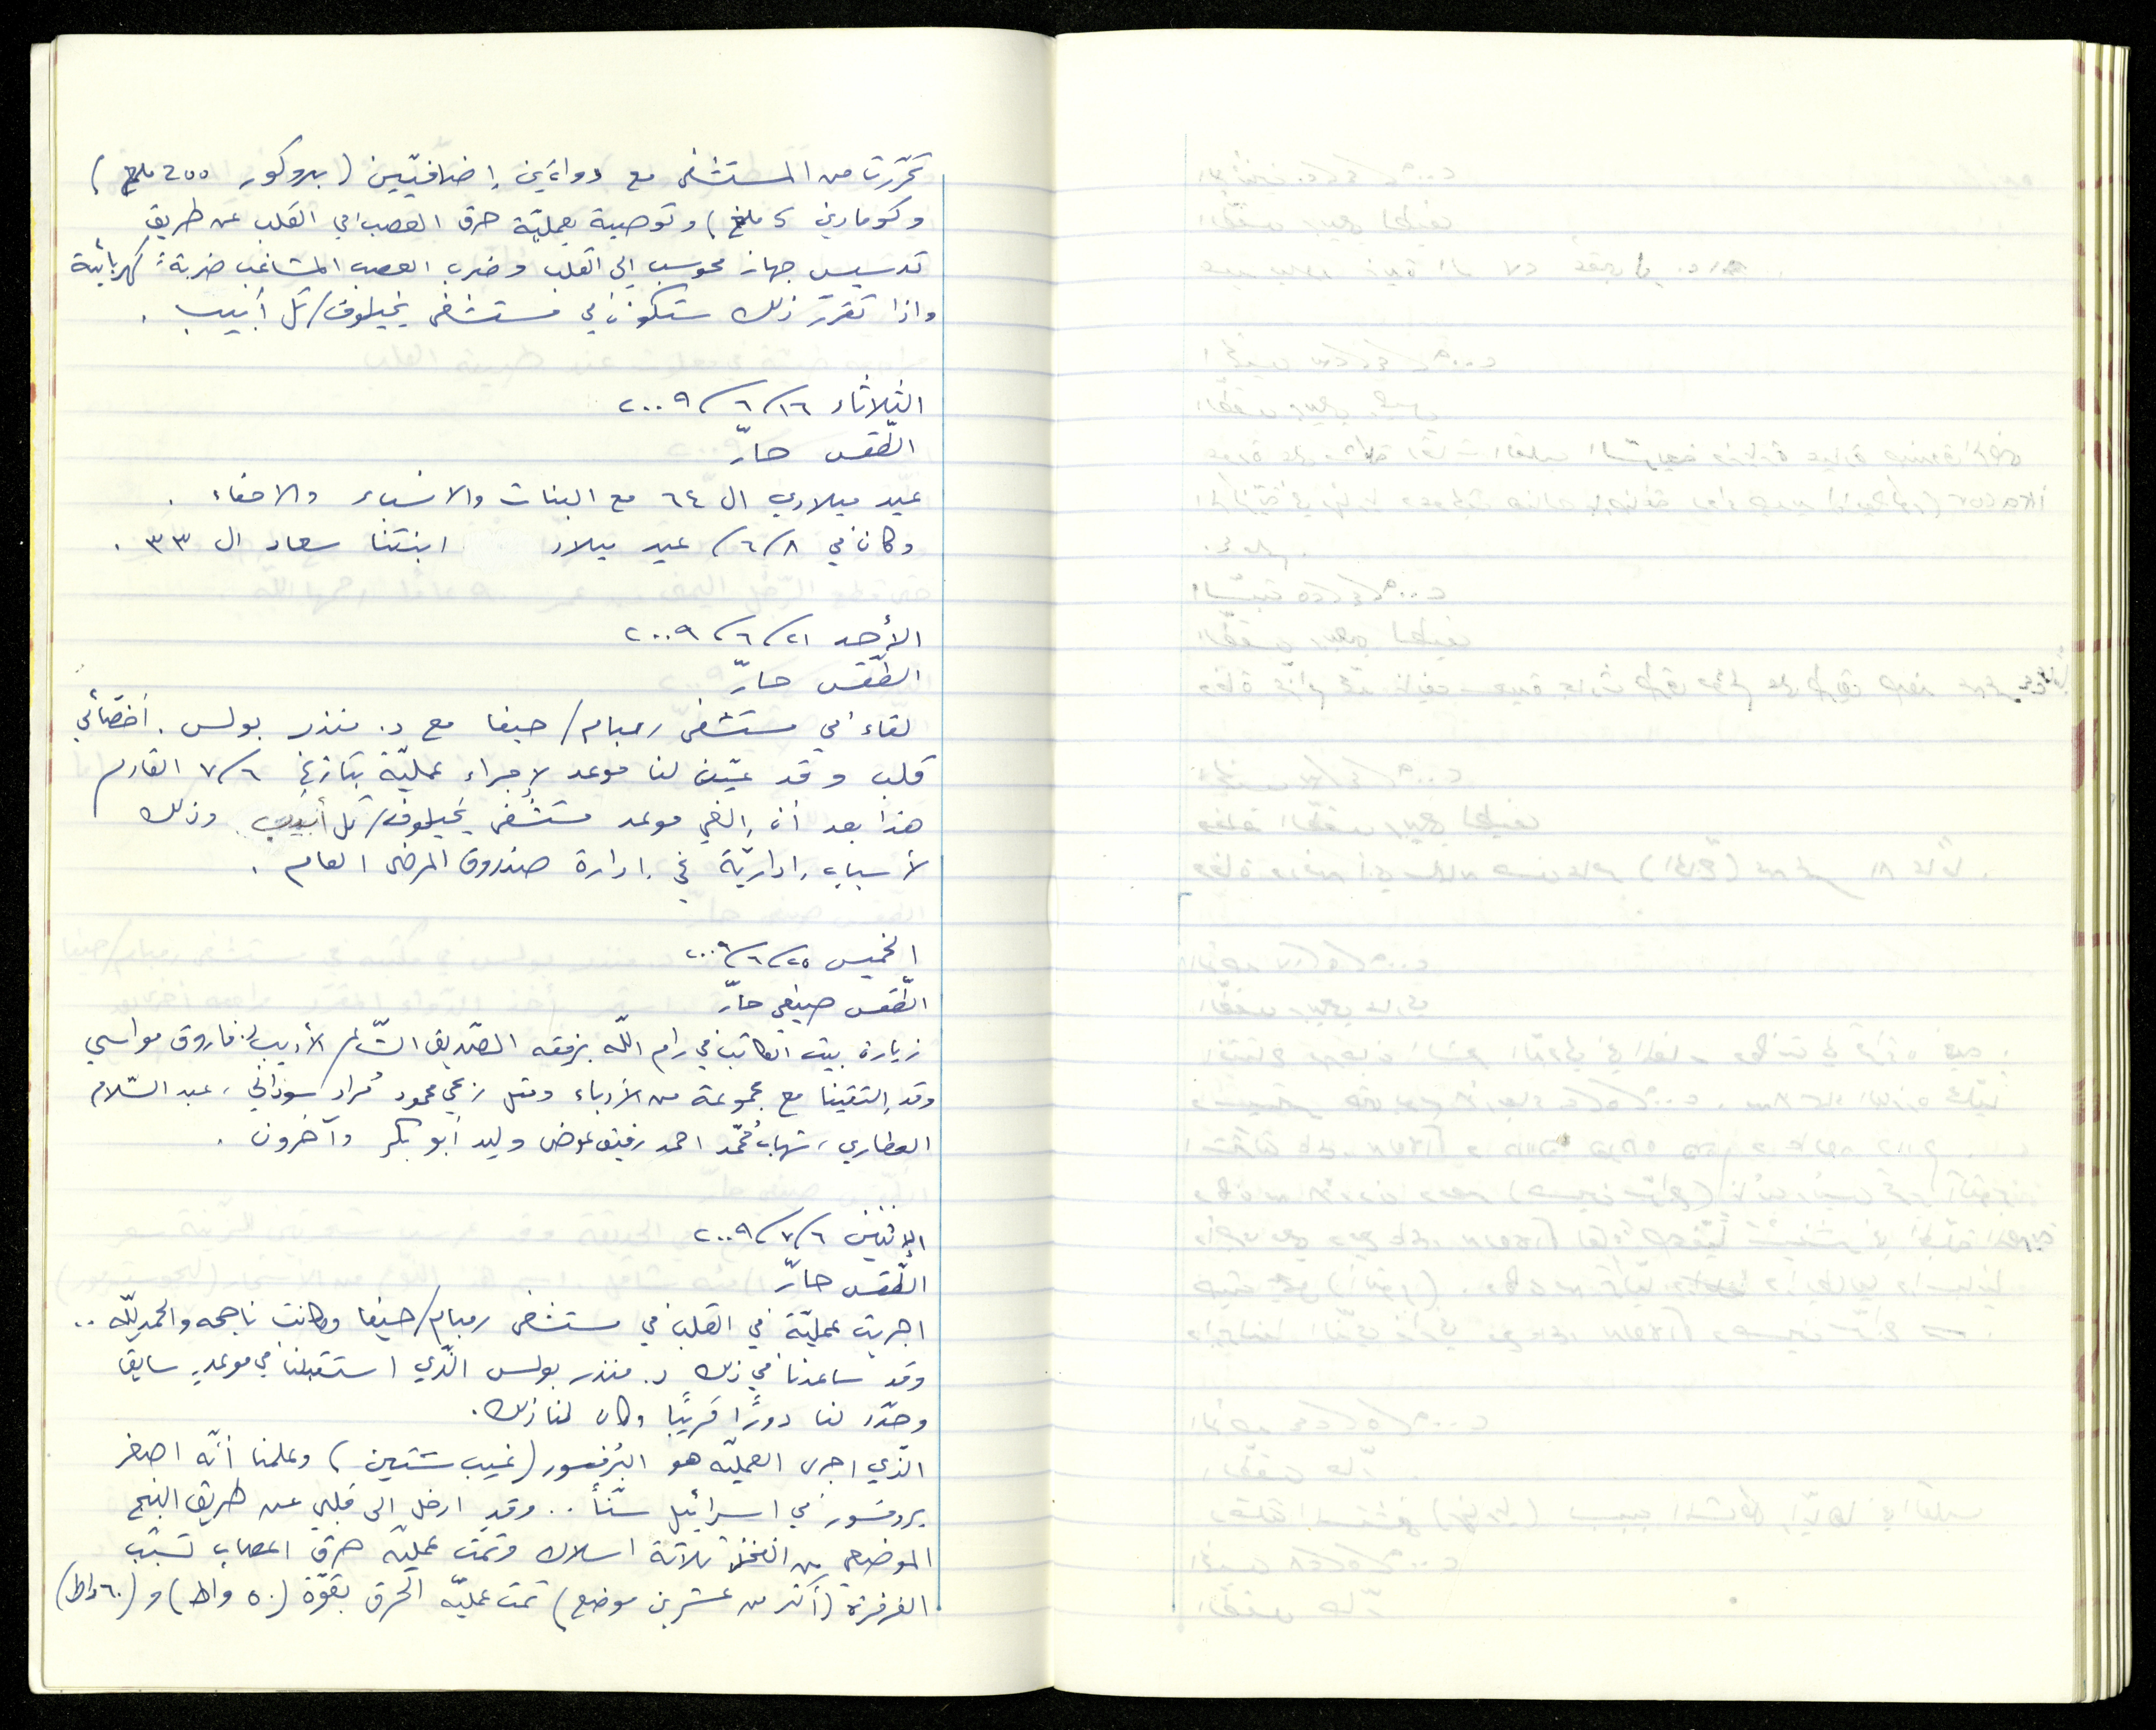 تحرّرت من المستشفى مع دوائين إضافيّين (بروكور 200 ملغ)
وكومادين 5 ملغ) وتوصية بعمليّة حرق العصب في القلب عن طريق
تدسيس جهاز محوسب الى القلب وضرب العصب المشاغب ضربة كهربائية
واذا تقرّر ذلك ستكون في مستشفى يخيلوف/تل أبيب.
الثلاثاء ١٦/٦/٢٠٠٩
الطّقس حارّ
عيد ميلادي ال ٦٤ مع البنات والانسباء والاحفاد.
وكان في ٦/٨/ عيد ميلاد ابنتنا سعاد ال ٣٣.
الأحد ٢١/٦/٢٠٠٩
الطّقس حارّ
لقاء في مستشفى رمبام/حيفا مع د. منذر بولس. أخصّائي
قلب وقد عيّن لنا موعد لإجراء عمليّة بتاريخ ٧/٦ القادم
هذا بعد أن إلغي موعد مستشفى يخيلوف/تل أبيب وذلك
لأسباب إداريّة في إدارة صندوق المرضى العام.
الخميس ٢٥/٦/٢٠٠٩
الطّقس صيفي حارّ
زيارة بيت الكاتب في رام اللّه برفقه الصّديق الشّاعر الأديب د. فاروق مواسي
وقد إلتقينا مع مجموعة من الأدباء ومنهم زعبي محمود مُراد سوداني، عبد السّلام
العطاري، شهاب مُحمّد احمد رفيق عوض وليد أبو بكر وآخرون.
الإثنين ٦/٧/٢٠٠٩
الطّقس حارّ
اجريت عمليّة في القلب في مستشفى رمبام/حيفا وكانت ناجحه والحمدللّه ..
وقد ساعدنا في ذلك د. منذر بولس الّذي استقبلنا في موعدٍ سابق
وحدّد لنا دورًا قريبًا وكان لنا ذلك.
الّذي اجرى العمليّه هو البُرفسور (غيب ستين) وعلمنا أنّه اصغر
بروفسور في اسرائيل سنًّا.. وقد ادخل الى قلبي عن طريق البنج
الموضعي من الفخذ ثلاثة اسلاك وتمّت عمليّة حرق اعصاب تسبّب
الفرفرة (أكثر من عشرين موضع) تمت عمليّه الحرق بقوّة (٥٠ واط) و (٦٠ واط)